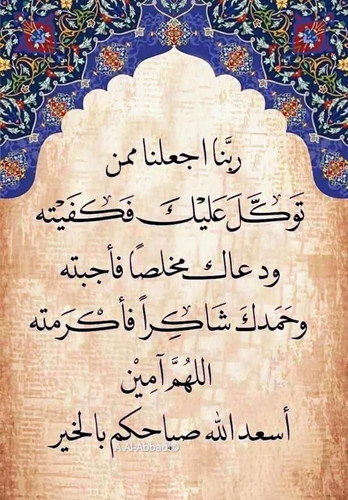 ربَّنا اجعلنا ممن
تَوَكَّلَ عَلَيْكَ فَكَفَيْتَه
ودعاك مخلصًا فأجبته
وحَمَدكَ شَاكِراً فأكْرَمته
اللهُمَّ آمِيْن
أسعد الله صباحكم بالخير
A Al-Abbadi©